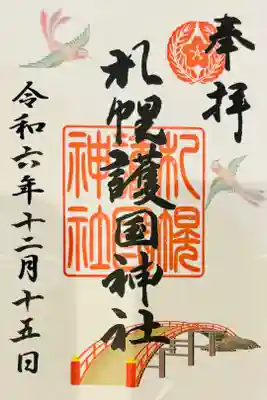 奉拝
札幌護国神社
札幌
護国
神社
令和六年十二月十五日